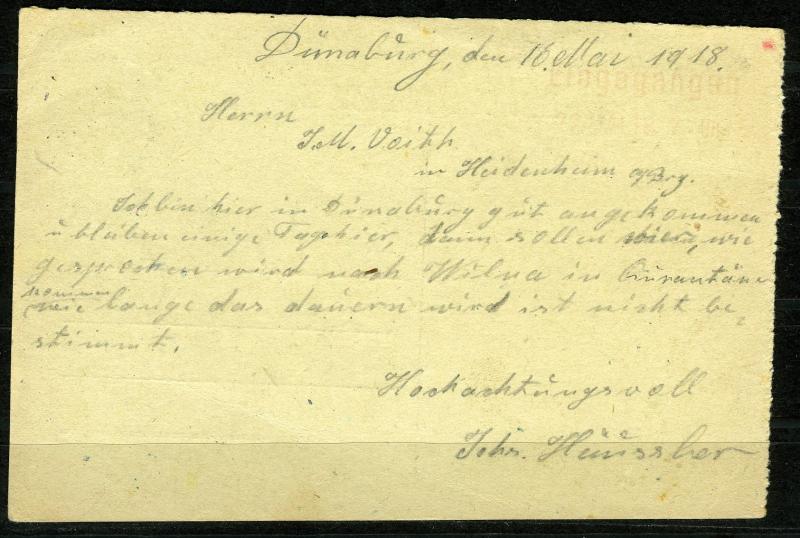 Dünaburg, den 16. Mai 1918.
Eingegangen
Herrn
J.M. Voith
in Heidenheim a/Brz.
Ich bin hier in Dünaburg gut angekommen
u bleiben einige Tage hier, dann sollen wir, wie
gesprochen wird nach Wilna in Qurantäne
kommen
wie lange das dauern wird ist nicht be-
stimmt.
Hochachtungsvoll
Johs. Häussler